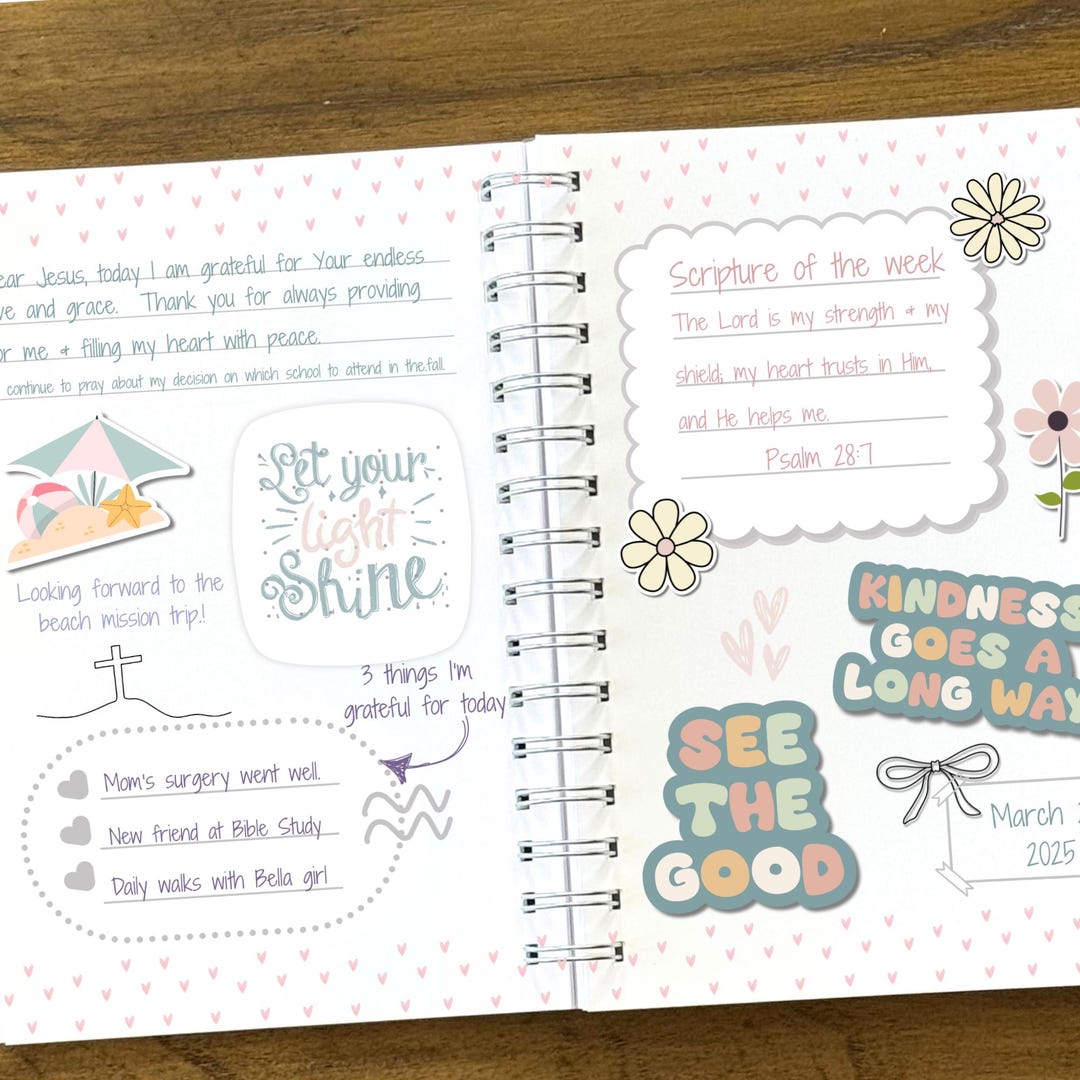 ear Jesus, today I am grateful for Your endless
ve and grace. Thank you for always providing
or me & filling my heart with peace.
continue to pray about my decision on which school to attend in the fall.
Let your
light
Shine
Looking forward to the
beach mission trip!
3 things I'm
grateful for today
Mom's surgery went well.
New friend at Bible Study
Daily walks with Bella girl
Scripture of the week
The Lord is my strength & my
shield; my heart trusts in Him,
and He helps me.
Psalm 28:7
KINDNESS
GOES A
LONG WAY
SEE
THE
GOOD
March
2025